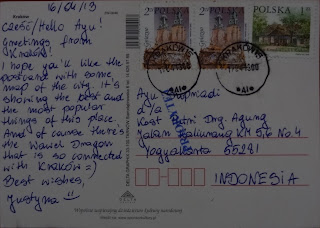 16/04/13
Cześć/Hello Ayu!
Greetings from
Kraków!
I hope you'll like the
postcard with some
map of the city. It's
showing the best and
the most popular
things of this place.
And of course there's
the Wawel Dragon
that is so connected
with Kraków =)
Best wishes,
Justyna
Kraków
POLSKA
PRIORITY
Ayu
d/a
Kost Putri Drg. Agung
Jalan Kaliurang KM 5,6 No. 4
Yogyakarta 55281
INDONESIA